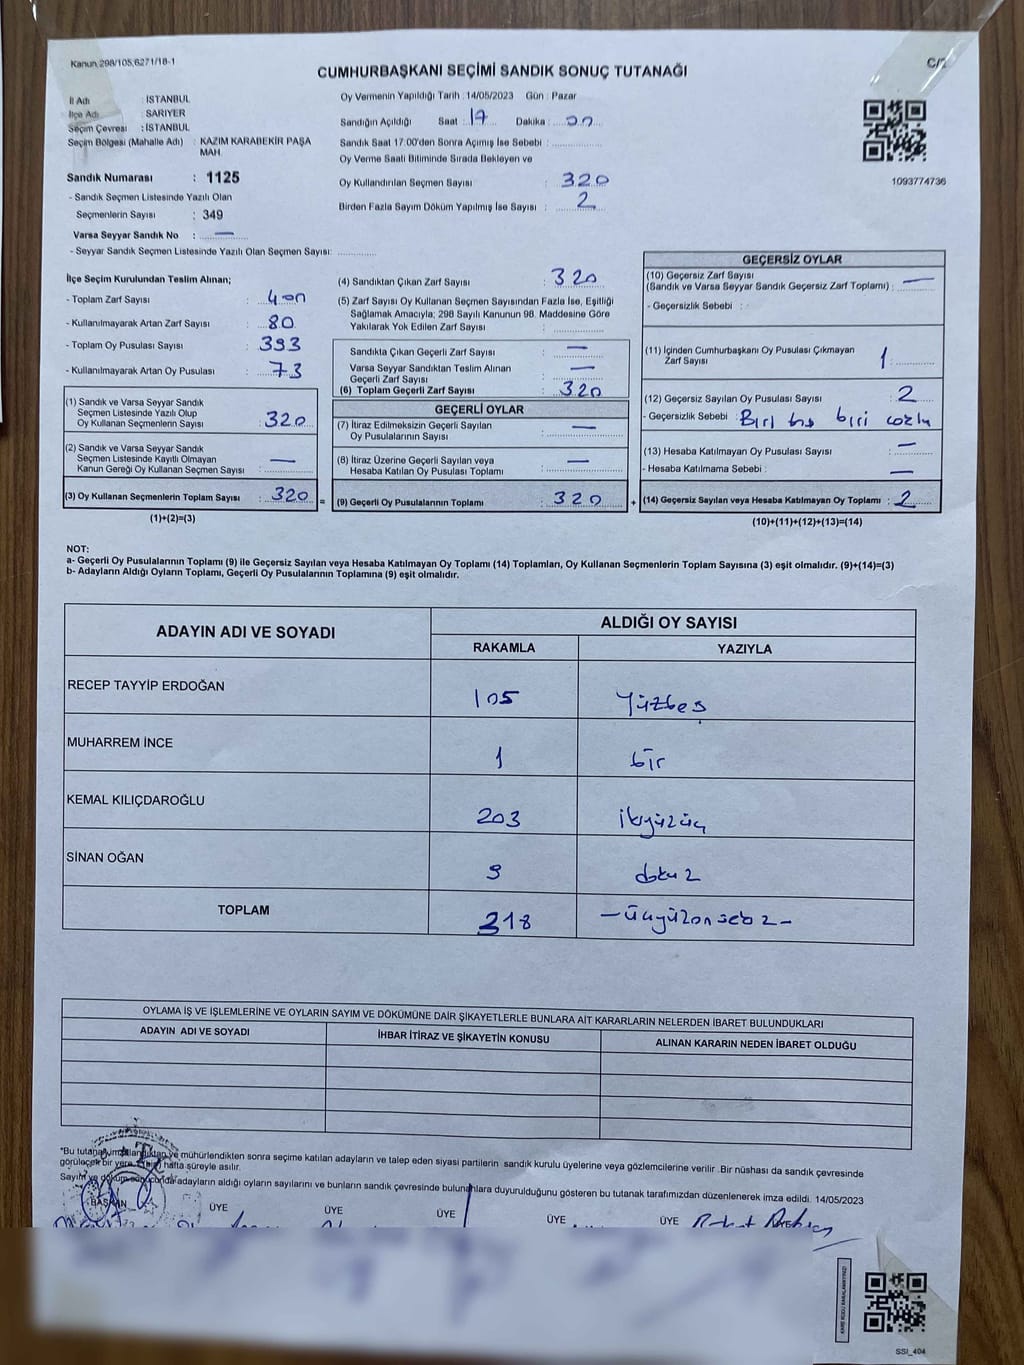 Kanun 298/105,6271/18-1
C/2
CUMHURBAŞKANI SEÇİMİ SANDIK SONUÇ TUTANAĞI
İl Adı : İSTANBUL
İlçe Adı : SARIYER
Seçim Çevresi : İSTANBUL
Seçim Bölgesi (Mahalle Adı) : KAZIM KARABEKİR PAŞA
MAH.
Sandık Numarası : 1125
- Sandık Seçmen Listesinde Yazılı Olan
Seçmenlerin Sayısı : 349
Varsa Seyyar Sandık No : —
- Seyyar Sandık Seçmen Listesinde Yazılı Olan Seçmen Sayısı:
Oy Vermenin Yapıldığı Tarih : 14/05/2023 Gün : Pazar
Sandığın Açıldığı Saat : 17 Dakika : 00
Sandık Saat 17:00'den Sonra Açımış İse Sebebi :
Oy Verme Saati Bitiminde Sırada Bekleyen ve
Oy Kullandırılan Seçmen Sayısı : 320
Birden Fazla Sayım Döküm Yapılmış İse Sayısı : 2
1093774736
İlçe Seçim Kurulundan Teslim Alınan;
- Toplam Zarf Sayısı : 400
- Kullanılmayarak Artan Zarf Sayısı : 80
- Toplam Oy Pusulası Sayısı : 393
- Kullanılmayarak Artan Oy Pusulası : 73
(1) Sandık ve Varsa Seyyar Sandık
Seçmen Listesinde Yazılı Olup
Oy Kullanan Seçmenlerin Sayısı : 320
(2) Sandık ve Varsa Seyyar Sandık
Seçmen Listesinde Kayıtlı Olmayan
Kanun Gereği Oy Kullanan Seçmen Sayısı : —
(3) Oy Kullanan Seçmenlerin Toplam Sayısı : 320 =
(1)+(2)=(3)
(4) Sandıktan Çıkan Zarf Sayısı : 320
(5) Zarf Sayısı Oy Kullanan Seçmen Sayısından Fazla İse, Eşitliği
Sağlamak Amacıyla; 298 Sayılı Kanunun 98. Maddesine Göre
Yakılarak Yok Edilen Zarf Sayısı :
Sandıkta Çıkan Geçerli Zarf Sayısı : —
Varsa Seyyar Sandıktan Teslim Alınan
Geçerli Zarf Sayısı : —
(6) Toplam Geçerli Zarf Sayısı : 320
GEÇERLİ OYLAR
(7) İtiraz Edilmeksizin Geçerli Sayılan
Oy Pusulalarının Sayısı : —
(8) İtiraz Üzerine Geçerli Sayılan veya
Hesaba Katılan Oy Pusulası Toplamı : —
(9) Geçerli Oy Pusulalarının Toplamı : 320 +
GEÇERSİZ OYLAR
(10) Geçersiz Zarf Sayısı
(Sandık ve Varsa Seyyar Sandık Geçersiz Zarf Toplamı) : —
- Geçersizlik Sebebi :
(11) İçinden Cumhurbaşkanı Oy Pusulası Çıkmayan
Zarf Sayısı : 1
(12) Geçersiz Sayılan Oy Pusulası Sayısı : 2
- Geçersizlik Sebebi : Biri biri
(13) Hesaba Katılmayan Oy Pusulası Sayısı : —
- Hesaba Katılmama Sebebi : —
(14) Geçersiz Sayılan veya Hesaba Katılmayan Oy Toplamı : 2
(10)+(11)+(12)+(13)=(14)
NOT:
a- Geçerli Oy Pusulalarının Toplamı (9) ile Geçersiz Sayılan veya Hesaba Katılmayan Oy Toplamı (14) Toplamları, Oy Kullanan Seçmenlerin Toplam Sayısına (3) eşit olmalıdır. (9)+(14)=(3)
b- Adayların Aldığı Oyların Toplamı, Geçerli Oy Pusulalarının Toplamına (9) eşit olmalıdır.
ADAYIN ADI VE SOYADI
ALDIĞI OY SAYISI
RAKAMLA YAZIYLA
RECEP TAYYİP ERDOĞAN 105 Yüzbeş
MUHARREM İNCE 1 bir
KEMAL KILIÇDAROĞLU 203 ikiyüzüç
SİNAN OĞAN 9 dokuz
TOPLAM 318 - üçyüzonsekiz -
OYLAMA İŞ VE İŞLEMLERİNE VE OYLARIN SAYIM VE DÖKÜMÜNE DAİR ŞİKAYETLERLE BUNLARA AİT KARARLARIN NELERDEN İBARET BULUNDUKLARI
ADAYIN ADI VE SOYADI İHBAR İTİRAZ VE ŞİKAYETİN KONUSU ALINAN KARARIN NEDEN İBARET OLDUĞU
*Bu mühürlendikten sonra seçime katılan adayların ve talep eden siyasi partilerin sandık kurulu üyelerine veya gözlemcilerine verilir. Bir nüshası da sandık çevresinde
görülecek bir yere hafta süreyle asılır.
Sayım ve döküm sonucunda adayların aldığı oyların sayılarını ve bunların sandık çevresinde bulunanlara duyurulduğunu gösteren bu tutanak tarafımızdan düzenlenerek imza edildi. 14/05/2023
BAŞKAN ÜYE ÜYE ÜYE ÜYE ÜYE
SSI_404